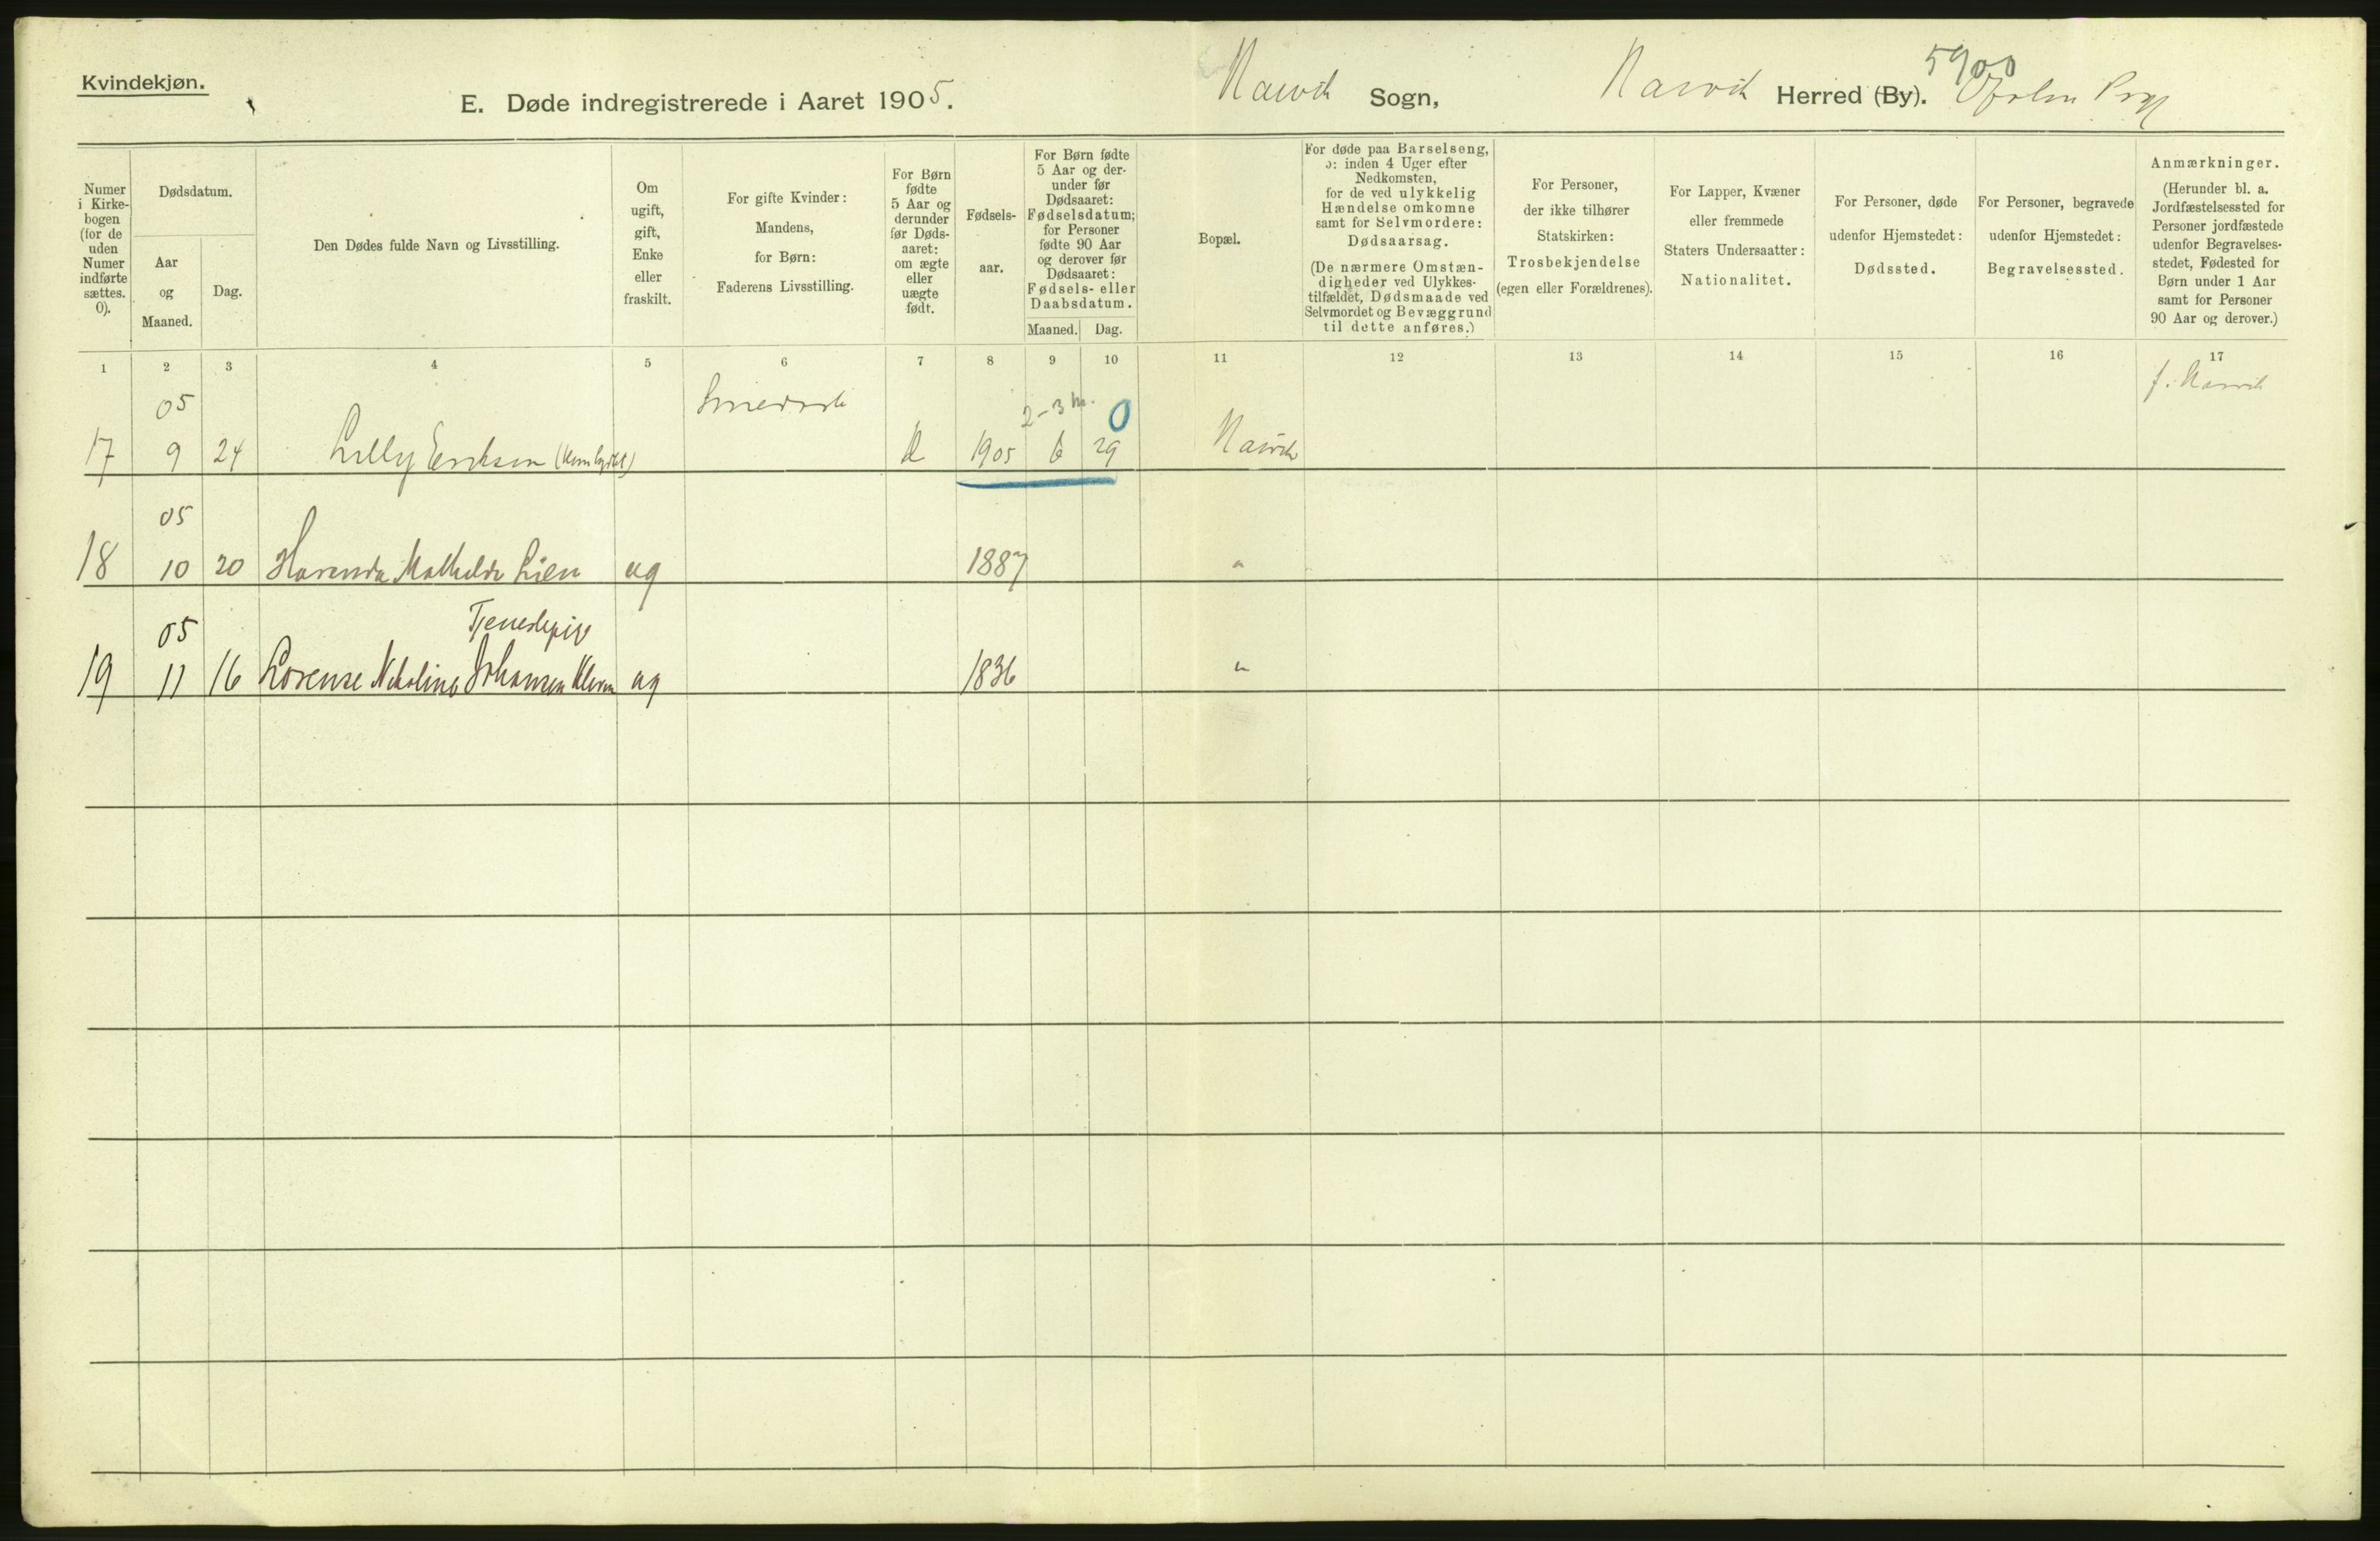 Kvindekjøn.
E. Døde indregistrerede i Aaret 1905.
Narvik Sogn,
Narvik Herred (By).
5900
Numer i Kirke-bogen (for de uden Numer indførte sættes. 0).
Dødsdatum.
Aar og Maaned.
Dag.
Den Dødes fulde Navn og Livsstilling.
Om ugift, gift, Enke eller fraskilt.
For gifte Kvinder: Mandens, for Børn: Faderens Livsstilling.
For Børn fødte 5 Aar og derunder før Døds-aaret: om ægte eller uægte født.
Fødsels-aar.
For Børn fødte 5 Aar og der-under før Dødsaaret: Fødselsdatum; for Personer fødte 90 Aar og derover før Dødsaaret: Fødsels- eller Daabsdatum.
Maaned. Dag.
Bopæl.
For døde paa Barselseng, ɔ: inden 4 Uger efter Nedkomsten, for de ved ulykkelig Hændelse omkomne samt for Selvmordere: Dødsaarsag.
(De nærmere Omstæn-digheder ved Ulykkes-tilfældet, Dødsmaade ved Selvmordet og Bevæggrund til dette anføres.)
For Personer, der ikke tilhører Statskirken: Trosbekjendelse (egen eller Forældrenes).
For Lapper, Kvæner eller fremmede Staters Undersaatter: Nationalitet.
For Personer, døde udenfor Hjemstedet: Dødssted.
For Personer, begravede udenfor Hjemstedet: Begravelsessted.
Anmærkninger.
(Herunder bl. a. Jordfæstelsessted for Personer jordfæstede udenfor Begravelses-stedet, Fødested for Børn under 1 Aar samt for Personer 90 Aar og derover.)
1 2 3 4 5 6 7 8 9 10 11 12 13 14 15 16 17
05 2-3 m. 0 f. Narvik
17 9 24 Lilly Eriksen 1905 6 29 Narvik
05
18 10 20 Mathilde Lien ug 1887 "
05 Tjenestepige
19 11 16 Lorense Nikoline Johansen ug 1836 "